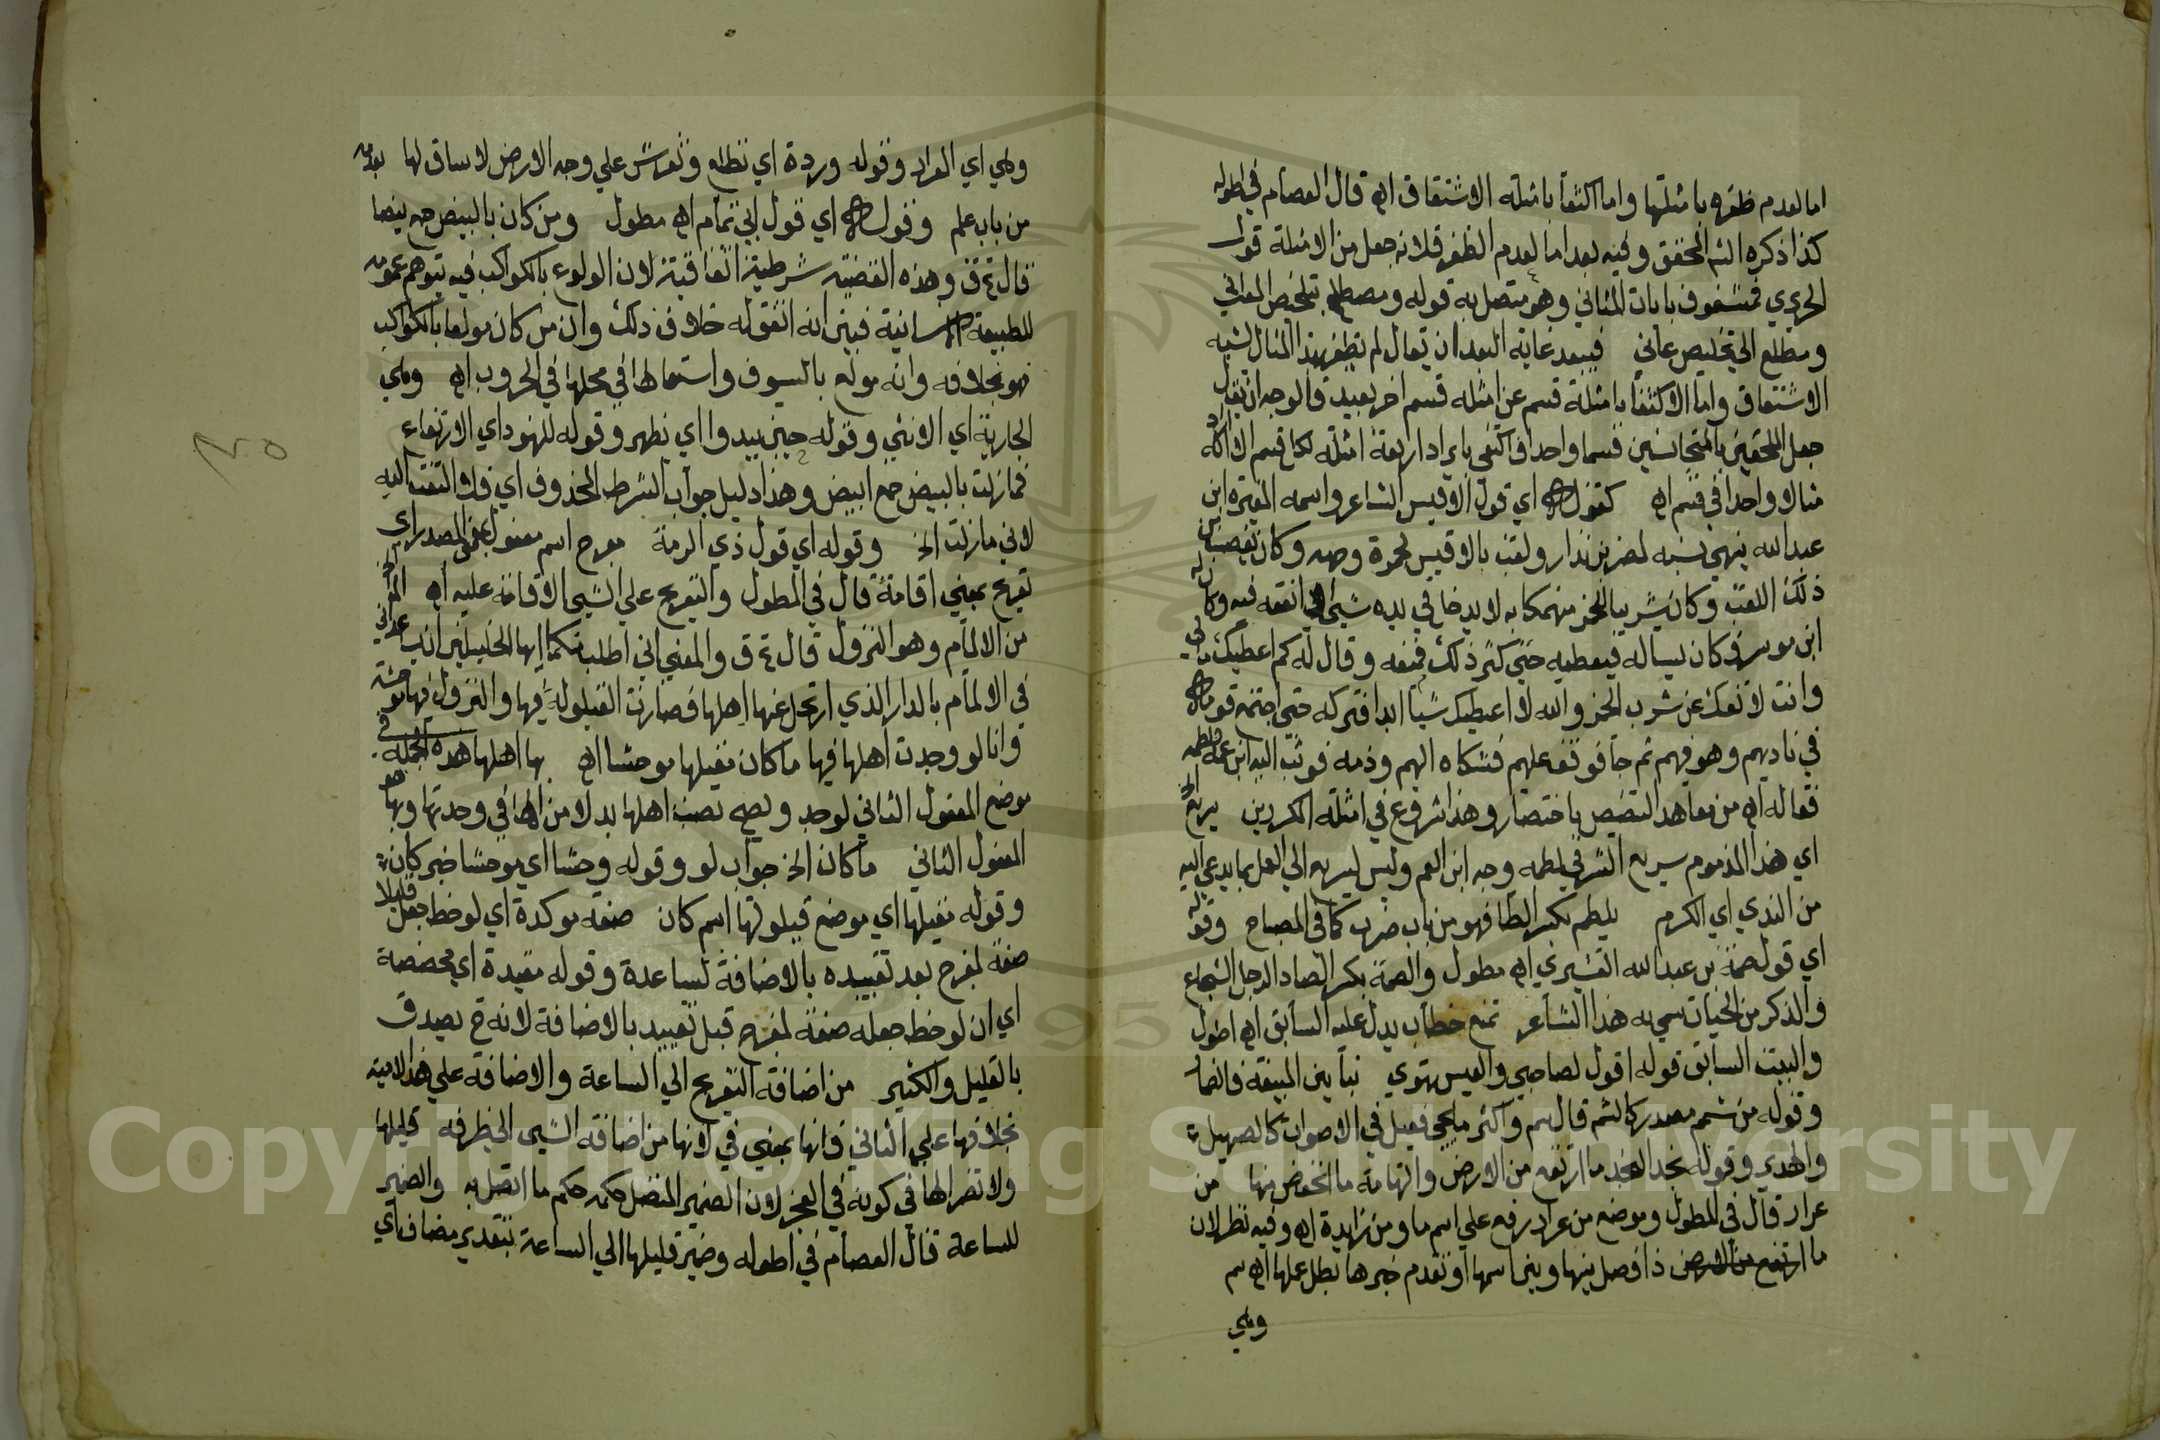 اما لعدم ظفره بامثلتها واما اكتفأ بامثلة الاشتقاق اه قال العصام في اطوله
كذا ذكره الشم المحقق وفيه بعد اما لعدم الظفر فلانه جعل من الامثلة قول
الحريري فمشغوف بايات المثاني وهو متصل به قوله ومضطلع بتلخيص المعاني
ومطلع الي تخليص عاني فيبعد غاية البعد ان يقال لم يظفر بهذا المثال لشبه
الاشتقاق واما الاكتفأ بامثلة قسم عن امثله قسم اخر بعيد فالوجه ان يقال
جعل الملحقين بالمتجانسين قسما واحدا فاكتفي بايراد اربعة امثلة لكل قسم
مثالا واحدا في قسم اه كقوله اي قول الاقيشر الشاعر واسمه المغيرة ابن
عبد الله ينهي نسبه لمضر بن نزار ولقب بالاقيشر لحمرة وجهه وكان يغضب من
ذلك اللقب وكان شريبا للخمر منهمكا به لا يدخل في يده شي الا انفقه فيه وكان له
ابن عم موسر فكان يساله فيعطيه حتي كثر ذلك فمنعه وقال له كم اعطيك مالي
وانت لا تفك عن شرب الخمر والله لا اعطيك شيأ ابدا فتركه حتي اجتمع قومه
في ناديهم وهو فيهم ثم جأ فوقف عليهم فشكاه اليهم وذمه فوثب اليه ابن عمه فلطمه
فقاله اه من معاهد التنصيص باختصار وهذا شروع في امثلة المكررين سريع الخ
اي هذا المذموم سريع الشر في لطمه وجه ابن العم وليس بسريع الي العمل بما يدعي اليه
من الندي اي الكرم يلطم بكسر الطا فهو من باب ضرب كما في المصباح وقوله
اي قول صمة بن عبد الله القشيري اه مطول والصمة بكسر الصاد الرجل الشجاع
والذكر من الحيات سمي به هذا الشاعر تمتع خطاب يدل عليه السابق اه اطول
والبيت السابق قوله اقول لصاحبي والعيس تهوي بنا بين المنيفة فالضمار
وقوله من شمم مصدر كالشم قال سم واكثر ما يجي فعيل في الاصوات كالصهيل
والهدير وقوله نجد النجد ما ارتفع من الارض والتهامة ما انخفض منها من
عرار قال في المطول وموضع من عرار رفع علي اسم ما ومن زايدة اه وفيه نظر لان
ما اذا فصل بينها وبين اسمها او تقدم خبرها بطل عملها اه سم
وهي
وهي اي العرار وقوله وردة اي تطلع وتفرش علي وجه الارض لا ساق لها
من باب علم وقوله اي قول ابي تمام اه مطول ومن كان بالبيض جمع بيضا
قال ع ق وهذه القضية شرطية اتفاقية لان الولوع بالكواكب فيه يتوهم
للطبيعة الانسانية فبين انه اتفق له خلاف ذلك وان من كان مولعا بالكواكب
فهو بخلافه وانه مولع بالسيوف واستعمالها في محلها في الحروب اه وهي
الجارية اي الانثي وقوله حين يبدوا اي يظهر وقوله للنهود اي الارتفاع
فما زلت بالبيض جمع ابيض وهذا دليل جواب الشرط المحذوف اي فلا التفت اليه
لاني ما زلت الخ وقوله اي قول ذي الرمة معرج اسم مفعول بمعني المصدر اي
تعريج بمعني اقامة قال في المطول والتعريج علي الشي الاقامة عليه اه الما الخ
من الالمام وهو النزول قال ع ق والمعني اني اطلب منكما ايها الخليلين ان تساعداني
في الالمام بالدار الذي ارتحل عنها اهلها فصارت القيلولة فيها والنزول فيها موحشة
وانا لو وجدت اهلها فيها ما كان مقيلها موحشا اه بها اهلها هذه الجملة في
موضع المفعول الثاني لوجد ويصح نصب اهلها بدلا من الها في وجدتها وبها هو
المفعول الثاني ما كان الخ جواب لو وقوله وحشا اي موحشا خبر كان
وقوله مقيلها اي موضع قيلولتها اسم كان صفة موكدة اي لوحظ جعل قليلا
صفة لمعرج بعد تقييده بالاضافة لساعدة وقوله مقيدة اي مخصصة
اي ان لوحظ جعله صفة لمعرج قبل تقييد بالاضافة لانه ح يصدق
بالقليل والكثير من اضافة التعريج الي الساعة والاضافة علي هذا لامية
بخلافها علي الثاني فانها بمعني في لانها من اضافة الشي الي ظرفه قليلها
ولا تضر الها في كونه في العجز لان الضمير المتصل حكمه حكم ما اتصل به والضمير
للساعة قال العصام في اطوله وضمير قليلها الي الساعة بتقدير مضاف اي
Copyright © King Saud University